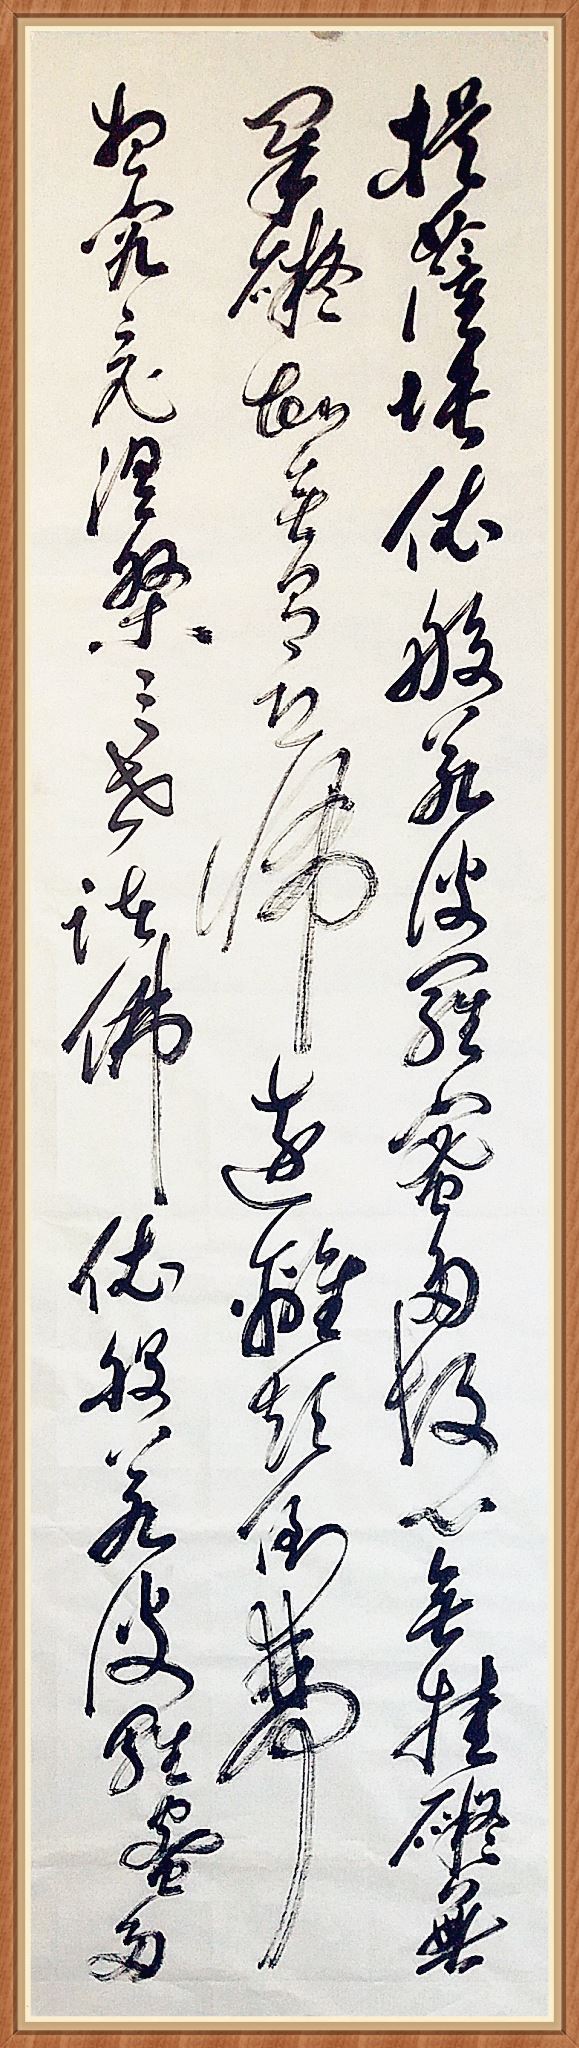 提薩埵依般若波羅蜜多故心無挂礙無
罣礙故無有恐怖遠離顛倒夢
想究竟涅槃三世諸佛依般若波羅蜜多